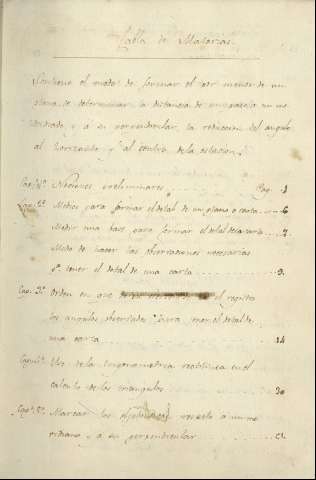 Tabla de Materias.
Contiene el modo de formar el por menor de un
plano, de determinar la distancia de un parage a un me
ridiano, y á su perpendicular, la reduccion del angulo
al horizonte y al centro de la estacion.
Cap. 1º. Nociones preliminares Pag. 1
Cap. 2º. Medios para formar el detal de un plano o carta 6
Medir una base para formar el detal de la carta 7
Modo de hacer las observaciones necesarias
pª. tener el detal de una carta 9.
Cap. 3º. Orden en que el registro
los angulos observados para tener el detal de
una carta 14
Cap. 4º. Uso de la trigonometria rectilinea en el
calculo de los triangulos 30
Cap. 5º. Marcar los objetos respecto a un me
ridiano y a su perpendicular